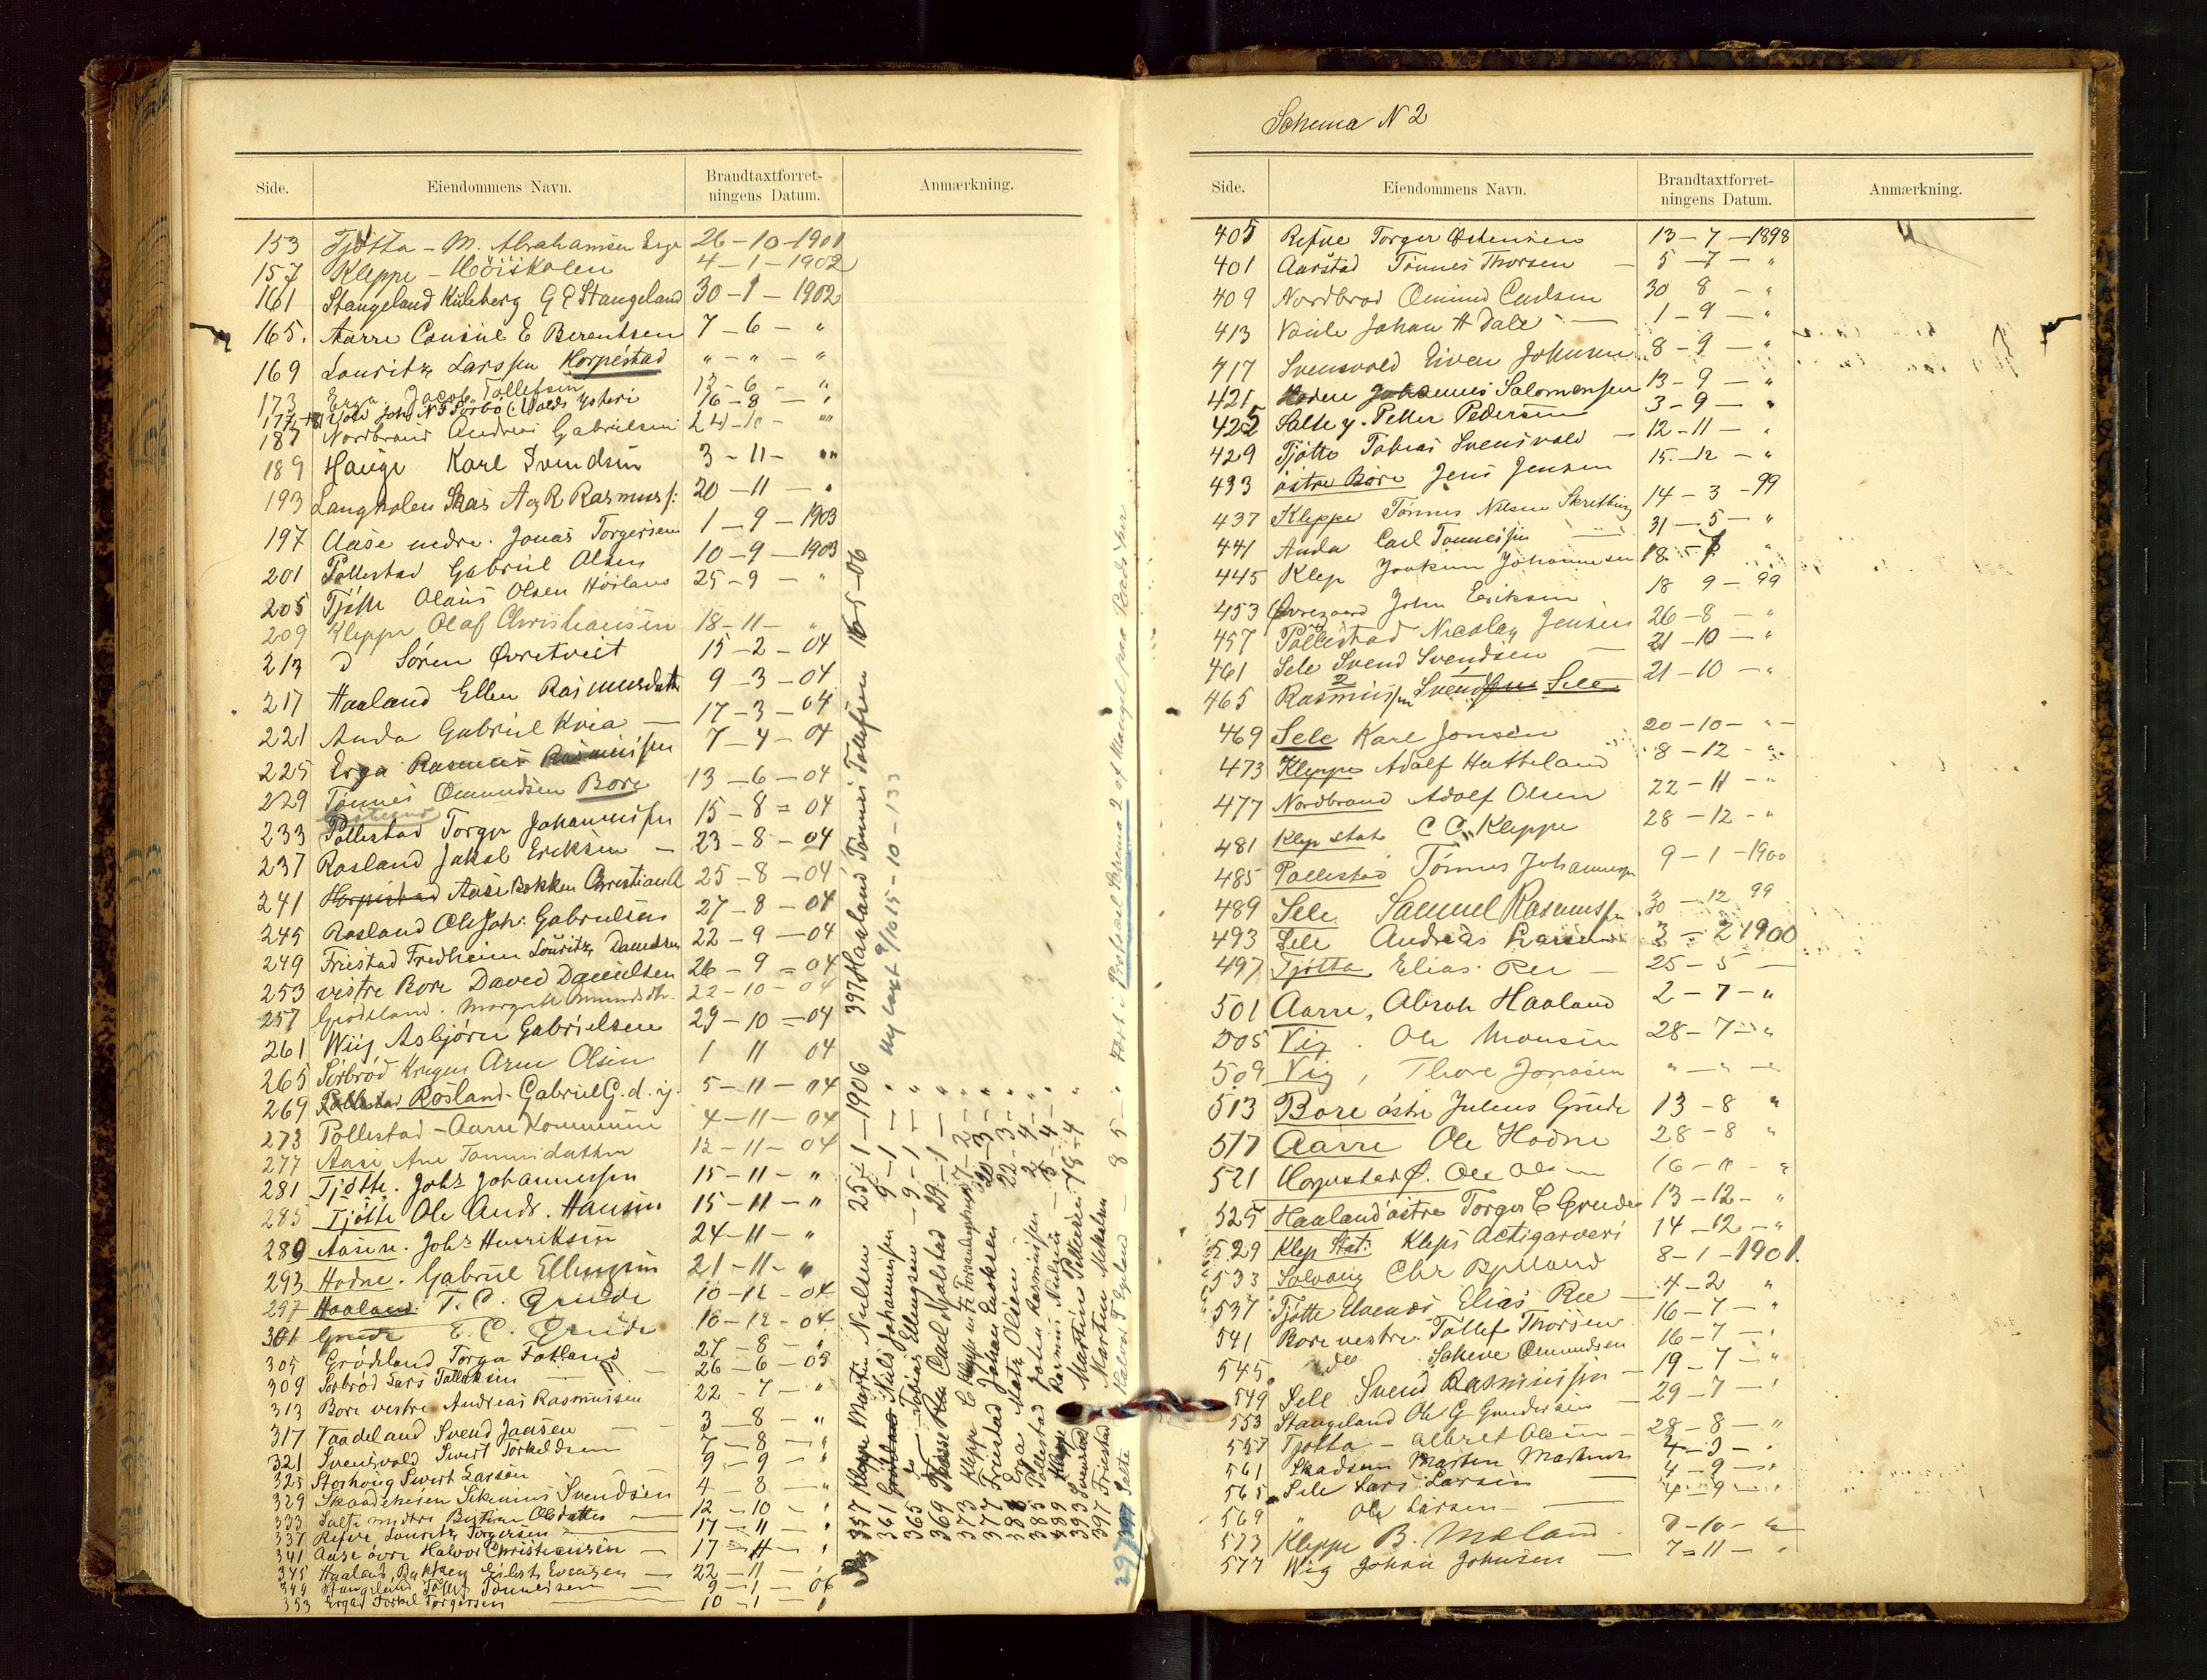 Side. Eiendommens Navn. Brandtaxtforret-ningens Datum. Anmærkning.
153 Tjøtta - M. Abrahamsen Erga 26-10-1901
157 Kleppe - Höiskolen 4-1-1902
161 Stangeland Kuleberg G E Stangeland 30-1-1902
165. Aarre Consul E Berentsen 7-6- "
169 Louritz Larssen Horpestad " - " - "
173 Erga Jacob Tollefsen 13-6- "
16-8- "
187 Nordbraud Andreas Gabrielsen 24-10- "
189 Hauge Karl Svendsen 3-11- "
193 Langholen Skas A og R Rasmuss: 20-11- "
197 Aase nedre. Jonas Torgersen 1-9-1903
201 Pollestad Gabriel Olsen 10-9-1903
205 Tjøtte Olaus Olsen Höiland 25-9- "
209 Kleppe Olaf Christiansen 18-11- "
213 D Sören Øvretveit 15-2-04
217 Haaland Ellen Rasmusdatt 9-3-04
221 Anda Gabriel Kvia 17-3-04
225 Erga Rasmus Rasmussen 7-4-04
229 Tönnes Omundsen Bore 13-6-04
233 Pollestad Torger Johannessen 15-8-04
237 Rosland Jakob Eriksen 23-8-04
241 Horpestad Aase Bakken Christian A 25-8-04
245 Rosland Ole Joh: Gabrielsen 27-8-04
249 Friestad Fredheim Louritz Danielsen 22-9-04
253 vestre Bore David Danielsen 26-9-04
257 Grødeland. Margrete 22-10-04
261 Wiig Asbjørn Gabrielsen 29-10-04
265 Sørbrød Arne Olsen 1 11 04
269 Pollestad Rosland - Gabriel G. d. y. 5-11-04
273 Pollestad - Aarre Kommune 4-11-04
277 Aase Ane Tonnesdatter 12-11-04
281 Tjøtte. Johs Johannessen 15-11- "
285 Tjøtte Ole Andr. Hansen 15-11- "
289 Aasen. Johs Henriksen 24-11- "
293 Hodne. Gabriel Ellingsen 21-11- "
297 Haaland T. C. Grude 10-12-04
301 Grude E. C. Grude 10-12-04
305 Grødeland Torger Fotland 27-8- "
309 Sørbrød Lars Tollaksen 26-6-05
313 Bore vestre Andreas Rasmussen 22-7- "
317 Vaadeland Svend Jaasen 3-8- "
321 Svensvold Sivert Torkeldsen 7-8- "
325 Storhoug Sivert Larsen 9-9- "
329 Sikenius Svendsen 4-8- "
333 Salte 12-10- "
337 Refve, Louritz Torgersen 17-11- "
341 Aase övre Halvor Christiansen 17-11- "
345 Haaland, Bakken Eilert Evensen 22-11- "
349 Stangeland Tollef Tonnessen 9-1-06
353 Erga Torkel Torgersen 10-1- "
357 Kleppe Martin Nielsen 25-1-1906
361 Nils Johannessen 9-1- "
365 Do Tobias Ellingsen 9-1- "
369 Carl Njalstad 29-1- "
373 Kleppe 17-2- "
377 Friestad Johan Enoksen 20-3- "
381 Erga Mats Olsen 22-3- "
385 Pollestad John Rasmussen 2-4- "
389 Kleppe Rasmus Nilsen 5-4- "
393 Svensvold Martin Pettersen 18-4 "
397 Friestad Martin Mikalsen
397 Salte Halvor T Egeland 8 5- "
397 Haaland Tønnes Tollefsen 16-5-06
Ny taxt 9/10 15-10-13
Ført i Protokol Skema 2 af Mangel paa Plads her
Schema N 2
Side. Eiendommens Navn. Brandtaxtforret-ningens Datum. Anmærkning.
405 Refve Torger Østensen 13-7-1898
401 Aarstad Tønnes Thorsen 5-7- "
409 Nordbrød Omund Carlsen 30 8 - "
413 Voile Johan H Dale 1-9- "
717 Svensvold Eiven Johnsen 8-9- "
421 Hodne Johannes Salomonsen 13-9- "
425 Salte y. Petter Pedersen 3-9- "
429 Tjøtte Tobias Svensvold 12-11- "
433 östre Bore Jens Jensen 15-12- "
437 Kleppe Tønnes Nilsen Skretting 14-3-99
441 Anda Carl Tønnessen 31-5- "
445 Klep Joakim Johannesen 18- "
453 Øvregaard John Eriksen 18 9-99
457 Pollestad Nicolay Jensen 26-8- "
461 Sele Svend Svendsen 21-10- "
465 Rasmussen Svend Sele 21-10- "
469 Sele Karl Jonsen 20-10- "
473 Kleppe Adolf Hatteland 8-12- "
477 Nordbraud Adolf Olsen 22-11- "
481 Klep stat C C Kleppe 28-12- "
485 Pollestad Tönnes Johannesen 9-1-1900
489 Sele Samuel Rasmussen 30-12 99
493 Sele Andreas Larsen 3-2 1900
497 Tjøtta Elias Ree 25-5-
501 Aarre, Abrah Haaland 2-7- "
505 Vig. Ole Monsen 28-7- "
509 Vig, Thore Jonasen " - " -
513 Bore östre Julius Grude 13-8 "
517 Aarre Ole Hodne 28-8 "
521 Horpestad Ø. Ole Olsen 16-11- "
525 Haaland östre Torger C Grude 13-12- "
529 Klep Stat: Kleps Actigarveri 14-12- "
533 Solvang Chr Bylland 8-1-1901.
537 Tjøtte Elvenæs Elias Ree 4-2 "
541 Bore vestre Tollef Thorsen 16-7- "
545. do Sakeus Omundsen 16-7- "
549 Sele Svend Rasmussen 19-7- "
553 Stangeland Ole G Gundersen 29-7- "
557 Tjøtta - Albret Olsen 28-8- "
561 Skadsem Morten Mortensen 4-9- "
565 Sele Lars Larsen 4-9- "
569 " Ole Larsen 4-9- "
573 Kleppe B. Mæland. 7-10- "
577 Wig Johan Johnsen 7-11- "